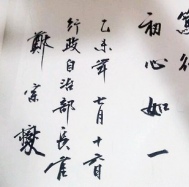 初心如一
乙未年 七月十六日
行政自治部長官
鄭宗燮